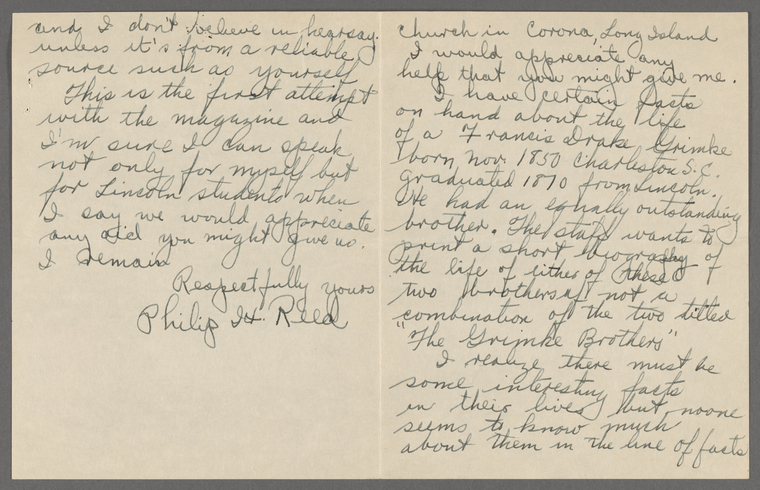 and I don't believe in hearsay.
unless it's from a reliable
source such as yourself
This is the first attempt
with the magazine and
I'm sure I can speak
not only for myself but
for Lincoln students when
I say we would appreciate
any aid you might give us.
I remain
Respectfully yours
Philip H. Reed
church in Corona, Long Island
I would appreciate any
help that you might give me.
I have certain facts
on hand about the life
of a Francis Drake Grimke
born, Nov. 1850 Charleston S.C.
graduated 1870 from Lincoln.
He had an equally outstanding
brother. The staff wants to
print a short biography of
the life of either of these
two brothers if not a
combination of the two titled
"The Grimke Brothers"
I realize there must be
some interesting facts
in their lives but noone
seems to know much
about them in the line of facts